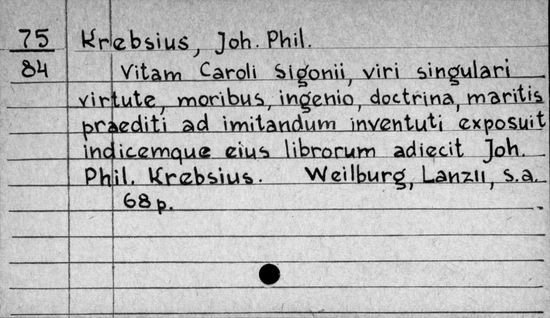 75 Krebsius, Joh. Phil.
84 Vitam Caroli Sigonii, viri singulari
virtute, moribus, ingenio, doctrina, maritis
praediti ad imitandum inventuti exposuit
indicemque eius librorum adiecit Joh.
Phil. Krebsius. Weilburg, Lanzii, s.a.
68 p.